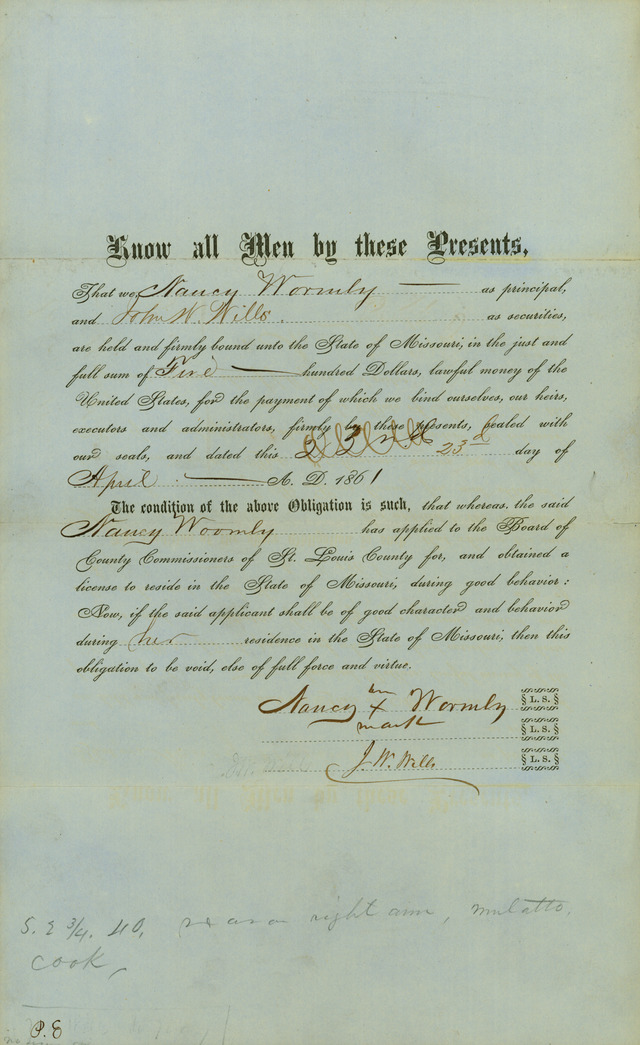 Know all Men by these Presents,
That we, Nancy Wormly as principal,
and John W. Wills as securities,
are held and firmly bound unto the State of Missouri, in the just and
full sum of Five hundred Dollars, lawful money of the
United States, for the payment of which we bind ourselves, our heirs,
executors and administrators, firmly by these presents, sealed with
our seals, and dated this 23rd day of
April A. D. 1861
The condition of the above Obligation is such, that whereas, the said
Nancy Wormly has applied to the Board of
County Commissioners of St. Louis County for, and obtained a
license to reside in the State of Missouri, during good behavior:
Now, if the said applicant shall be of good character and behavior
during her residence in the State of Missouri; then this
obligation to be void, else of full force and virtue.
her
Nancy X Wormly L. S.
mark L. S.
J. W. Wills L. S.
5. 2 3/4. 40, right arm, mulatto.
cook,
P. E